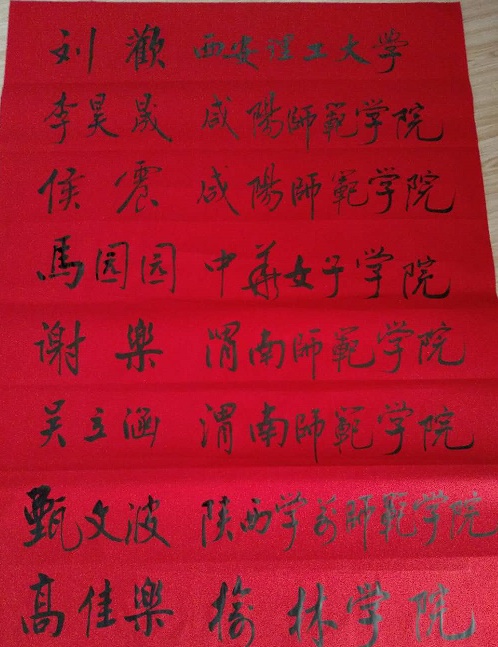 刘歡 西安理工大学
李昊晟 咸陽師範学院
侯震 咸陽師範学院
馬园园 中華女子学院
谢樂 渭南師範学院
吴立涵 渭南師範学院
甄文波 陕西学前師範学院
高佳樂 榆林学院